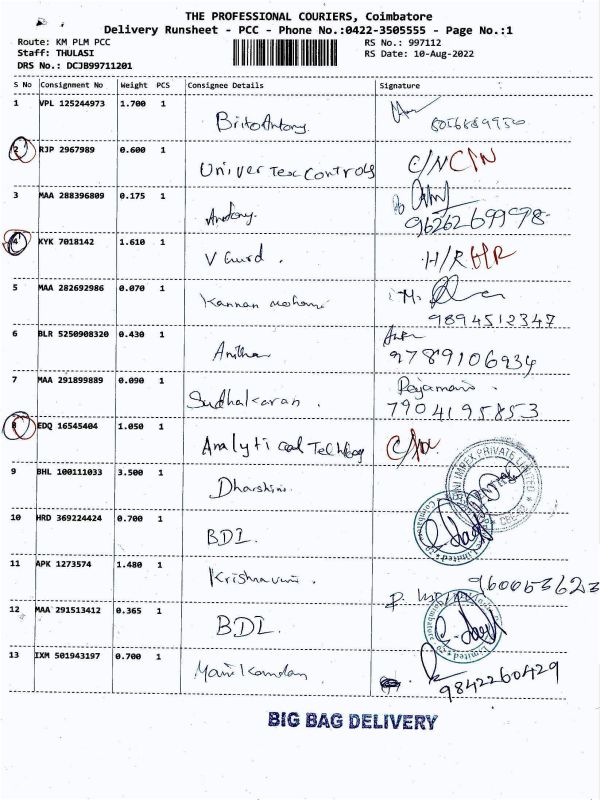 THE PROFESSIONAL COURIERS, Coimbatore
Delivery Runsheet - PCC - Phone No.:0422-3505555 - Page No.:1
Route: KM PLM PCC
RS No.: 997112
Staff: THULASI
RS Date: 10-Aug-2022
DRS No.: DCJB99711201
S No Consignment No Weight PCS Consignee Details Signature
1 VPL 125244973 1.700 1
Brito Antony
2 RJP 2967989 0.600 1
Univer Tex Controls C/N C/N
3 MAA 288396809 0.175 1
Antony. 9626269998
4 KYK 7018142 1.610 1
V Guard. H/R H/R
5 MAA 282692986 0.070 1
Kannan M.
9894512347
6 BLR 5250908320 0.430 1
Anitha 9789106934
7 MAA 291899889 0.090 1
Sudhakaran. Rajamani.
7904195853
8 EDQ 16545404 1.050 1
Analytical
9 BHL 100111033 3.500 1
Dharshini
10 HRD 369224424 0.700 1
BDI.
11 APK 1273574 1.480 1
9600653623
12 MAA 291513412 0.365 1
BDI.
13 IXM 501943197 0.700 1
Manikandan 9842260429
BIG BAG DELIVERY